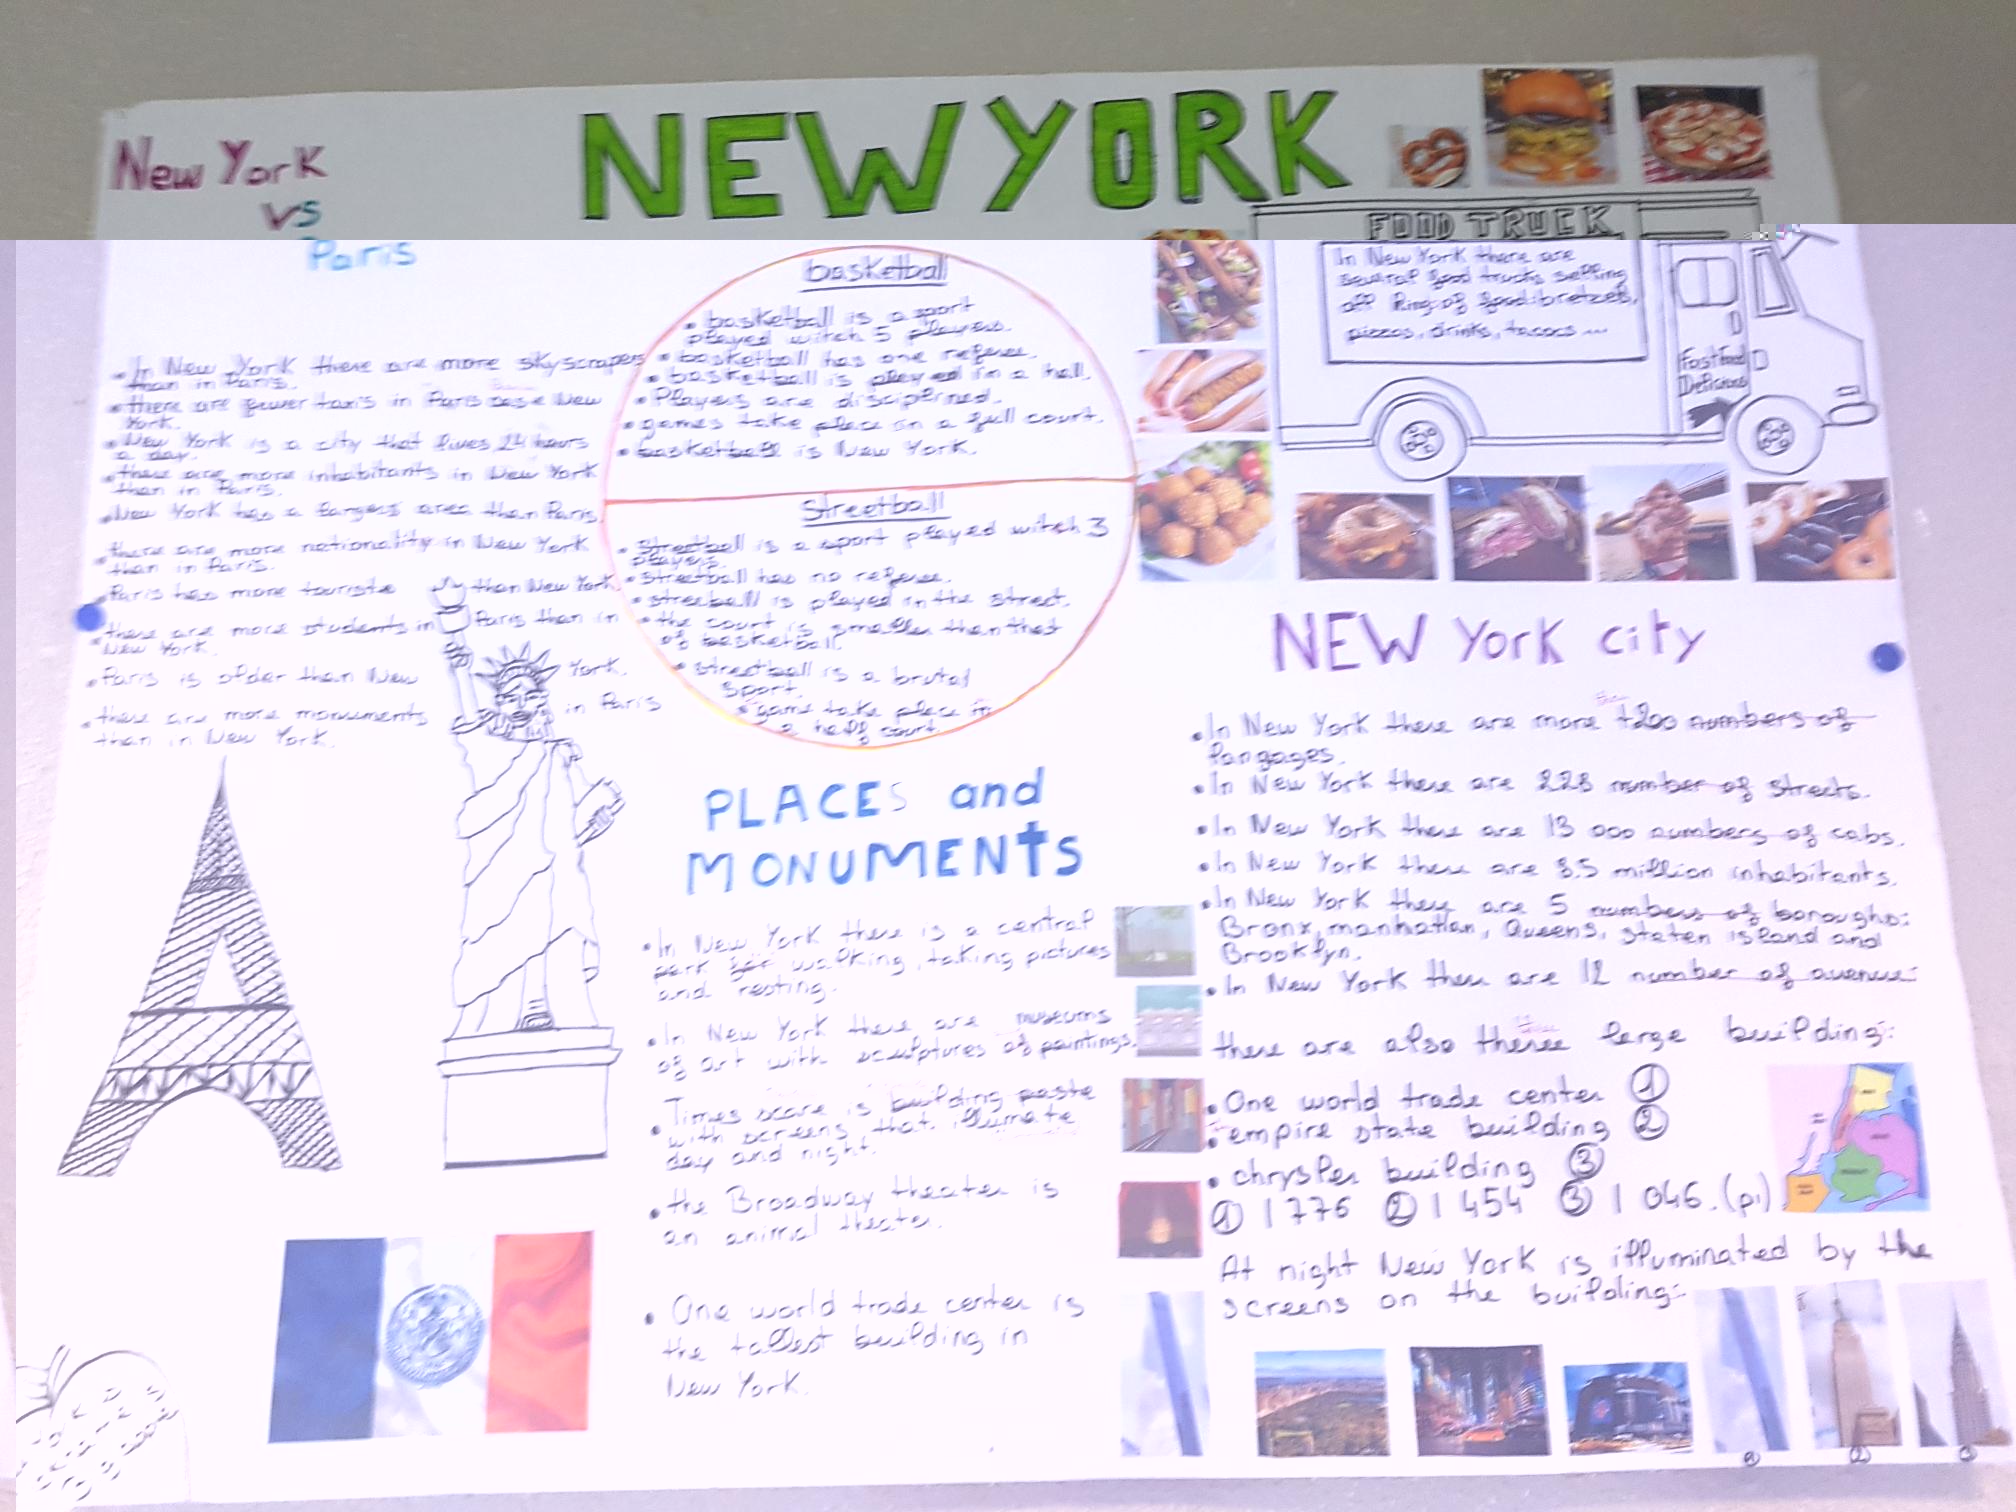 NEW YORK
New York
vs
Paris
• In New York there are more skyscrapers
than in Paris.
• there are fewer taxis in Paris New
York.
• New York is a city that lives 24 hours
a day.
• there are more inhabitants in New York
than in Paris.
• New York has a largest area than Paris
• there are more nationality in New York
than in Paris.
• Paris has more tourists than New York.
• there are more students in Paris than in
New York.
• Paris is older than New York.
• there are more monuments in Paris
than in New York.
basketball
• basketball is a sport
played witch 5 players.
• basketball has one referee.
• basketball is played in a hall.
• Players are
• games take place in a full court.
• basketball is New York.
Streetball
• streetball is a sport played witch 3
players.
• streetball has no referee.
• streeball is played in the street.
• the court is smaller than that
of basketball.
• streetball is a brutal
sport.
• game take place in
a half court.
PLACES and
MONUMENTS
• In New York there is a central
park for walking, taking pictures
and resting.
• In New York there are museums
of art with sculptures of paintings.
• Times scare is building paste
with screens that illumate
day and night.
• the Broadway theater is
an animal theater.
• One world trade center is
the tallest building in
New York.
FOOD TRUCK
In New York there are
several food trucks selling
all of food: bretzel,
pizzas, drinks, tacocs ...
Fast Food
Delicious
NEW York city
• In New York there are more +200 numbers of
langages.
• In New York there are 228 number of streets.
• In New York there are 13 000 numbers of cabs.
• In New York there are 8.5 million inhabitants.
• In New York there are 5 numbers of boroughs:
Bronx, manhattan, Queens, staten island and
Brooklyn.
• In New York there are 12 number of avenue
there are also large building:
• One world trade center ①
• empire state building ②
• chrysler building ③
① 1 776 ② 1 454 ③ 1 046. (pi)
At night New York is illuminated by the
screens on the building:
① ② ③